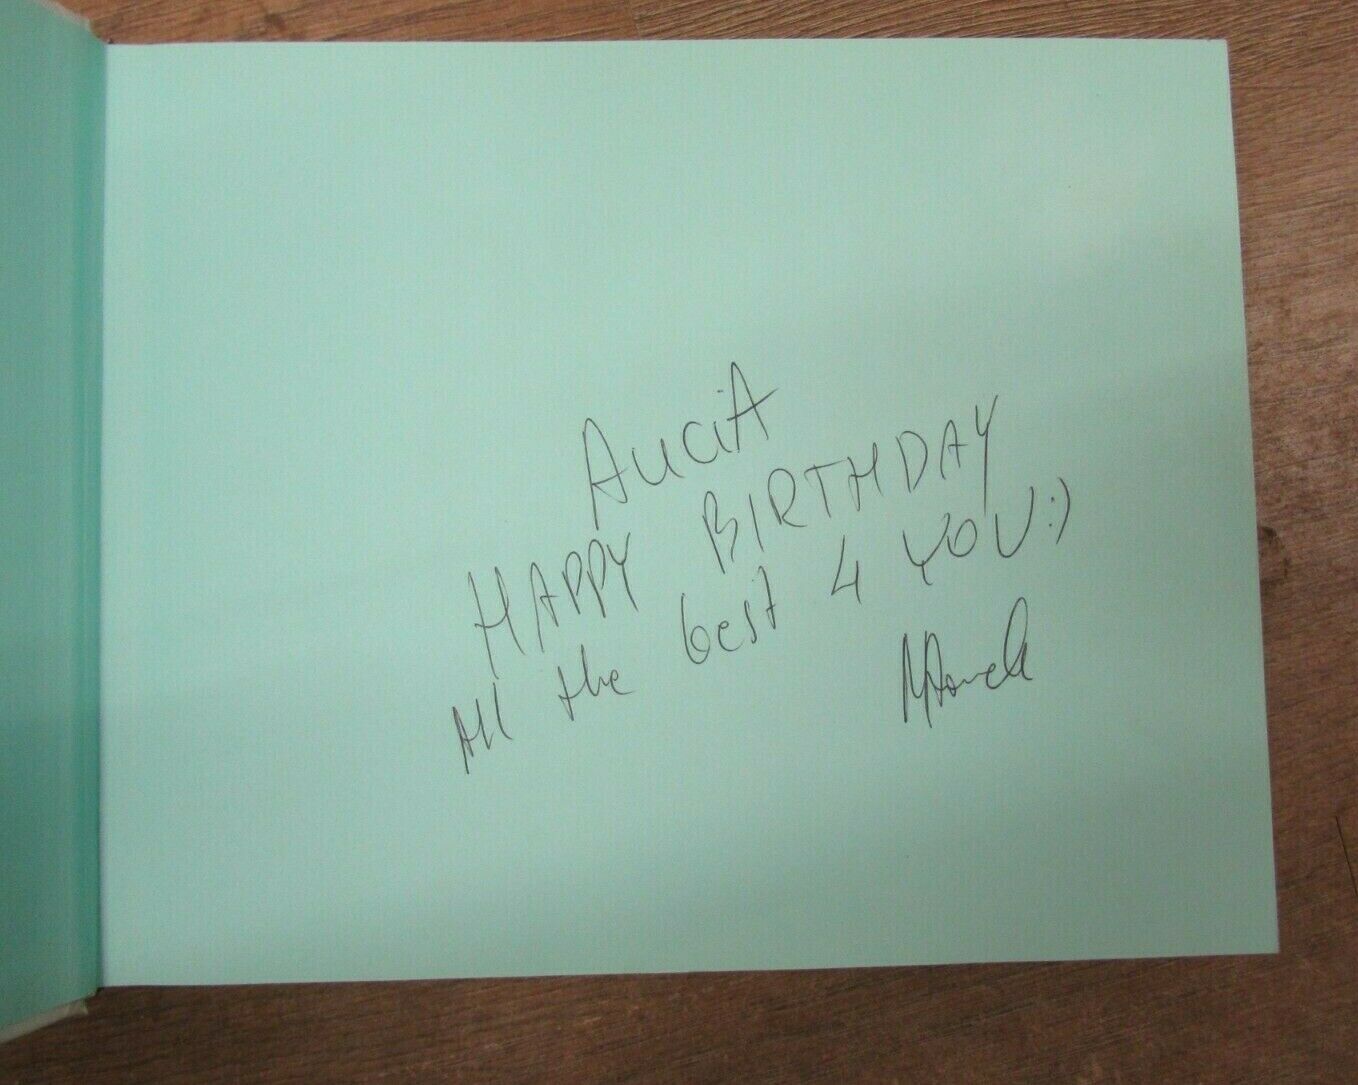 Alicia
HAPPY BIRTHDAY
All the best 4 YOU :)